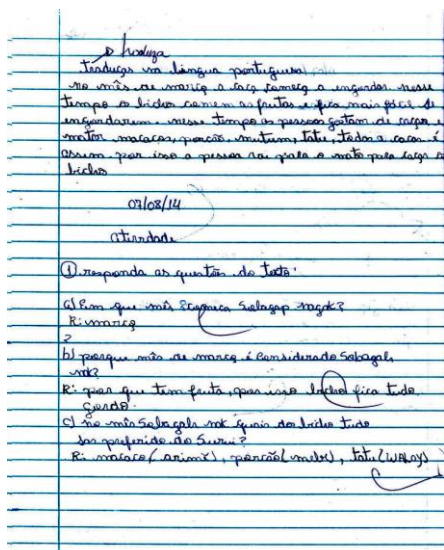 traduza
tradução na língua portuguesa
no mês de março a caça começa a engordar nesse
tempo os bichos comem as frutas e fica mais fácil de
engordarem. nesse tempo as pessoas gostam de caçar e
matar macacos, porcão, mutum, tatu, todos a caças é
assim por isso a pessoa vai para o mato para caçar o
bicho
07/08/14
atividade
① responda as questão do texto:
a) em que mês começa
R: março
b) porque mês de março é considerado Sobagah
mk?
R: por que tem fruta, por isso bicho fica tudo
gordo.
c) no mês Sobagah mk quais dos bicho tudo
sas preferido do Surui?
R: macaco (arimẽ), porcão (mebe), tatu (waloy)